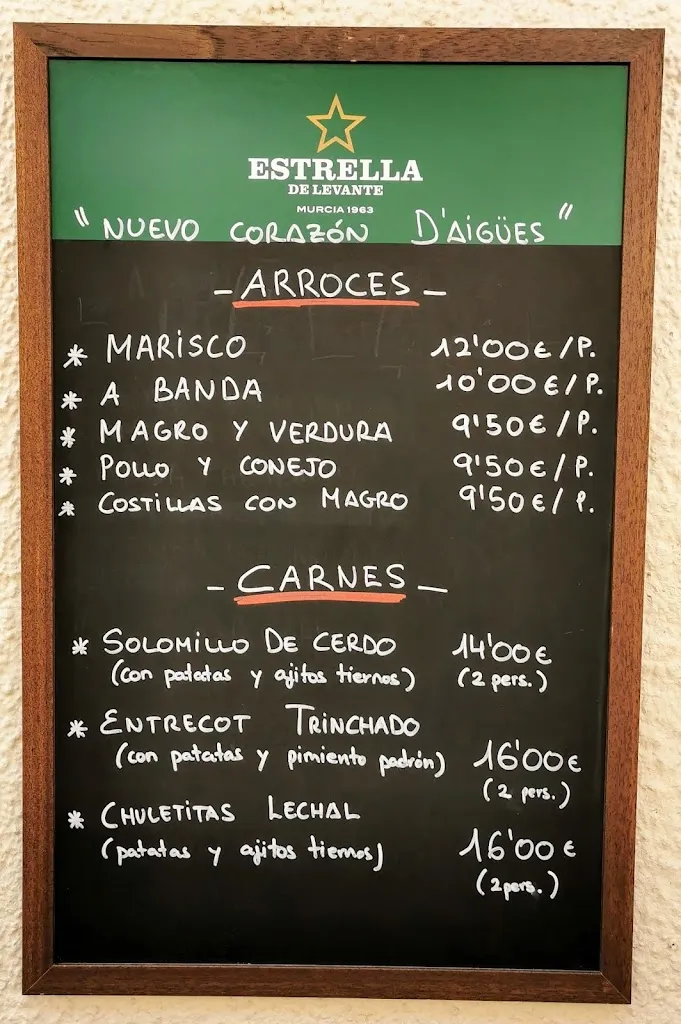 ESTRELLA
DE LEVANTE
MURCIA 1963
"NUEVO CORAZÓN D'AIGÜES"
- ARROCES -
* MARISCO 12'00€/P.
* A BANDA 10'00€/P.
* MAGRO Y VERDURA 9'50€/P.
* POLLO Y CONEJO 9'50€/P.
* COSTILLAS CON MAGRO 9'50€/P.
- CARNES -
* SOLOMILLO DE CERDO 14'00€
(con patatas y ajitos tiernos) (2 pers.)
* ENTRECOT TRINCHADO
(con patatas y pimiento padrón) 16'00€
(2 pers.)
* CHULETITAS LECHAL
(patatas y ajitos tiernos) 16'00€
(2 pers.)